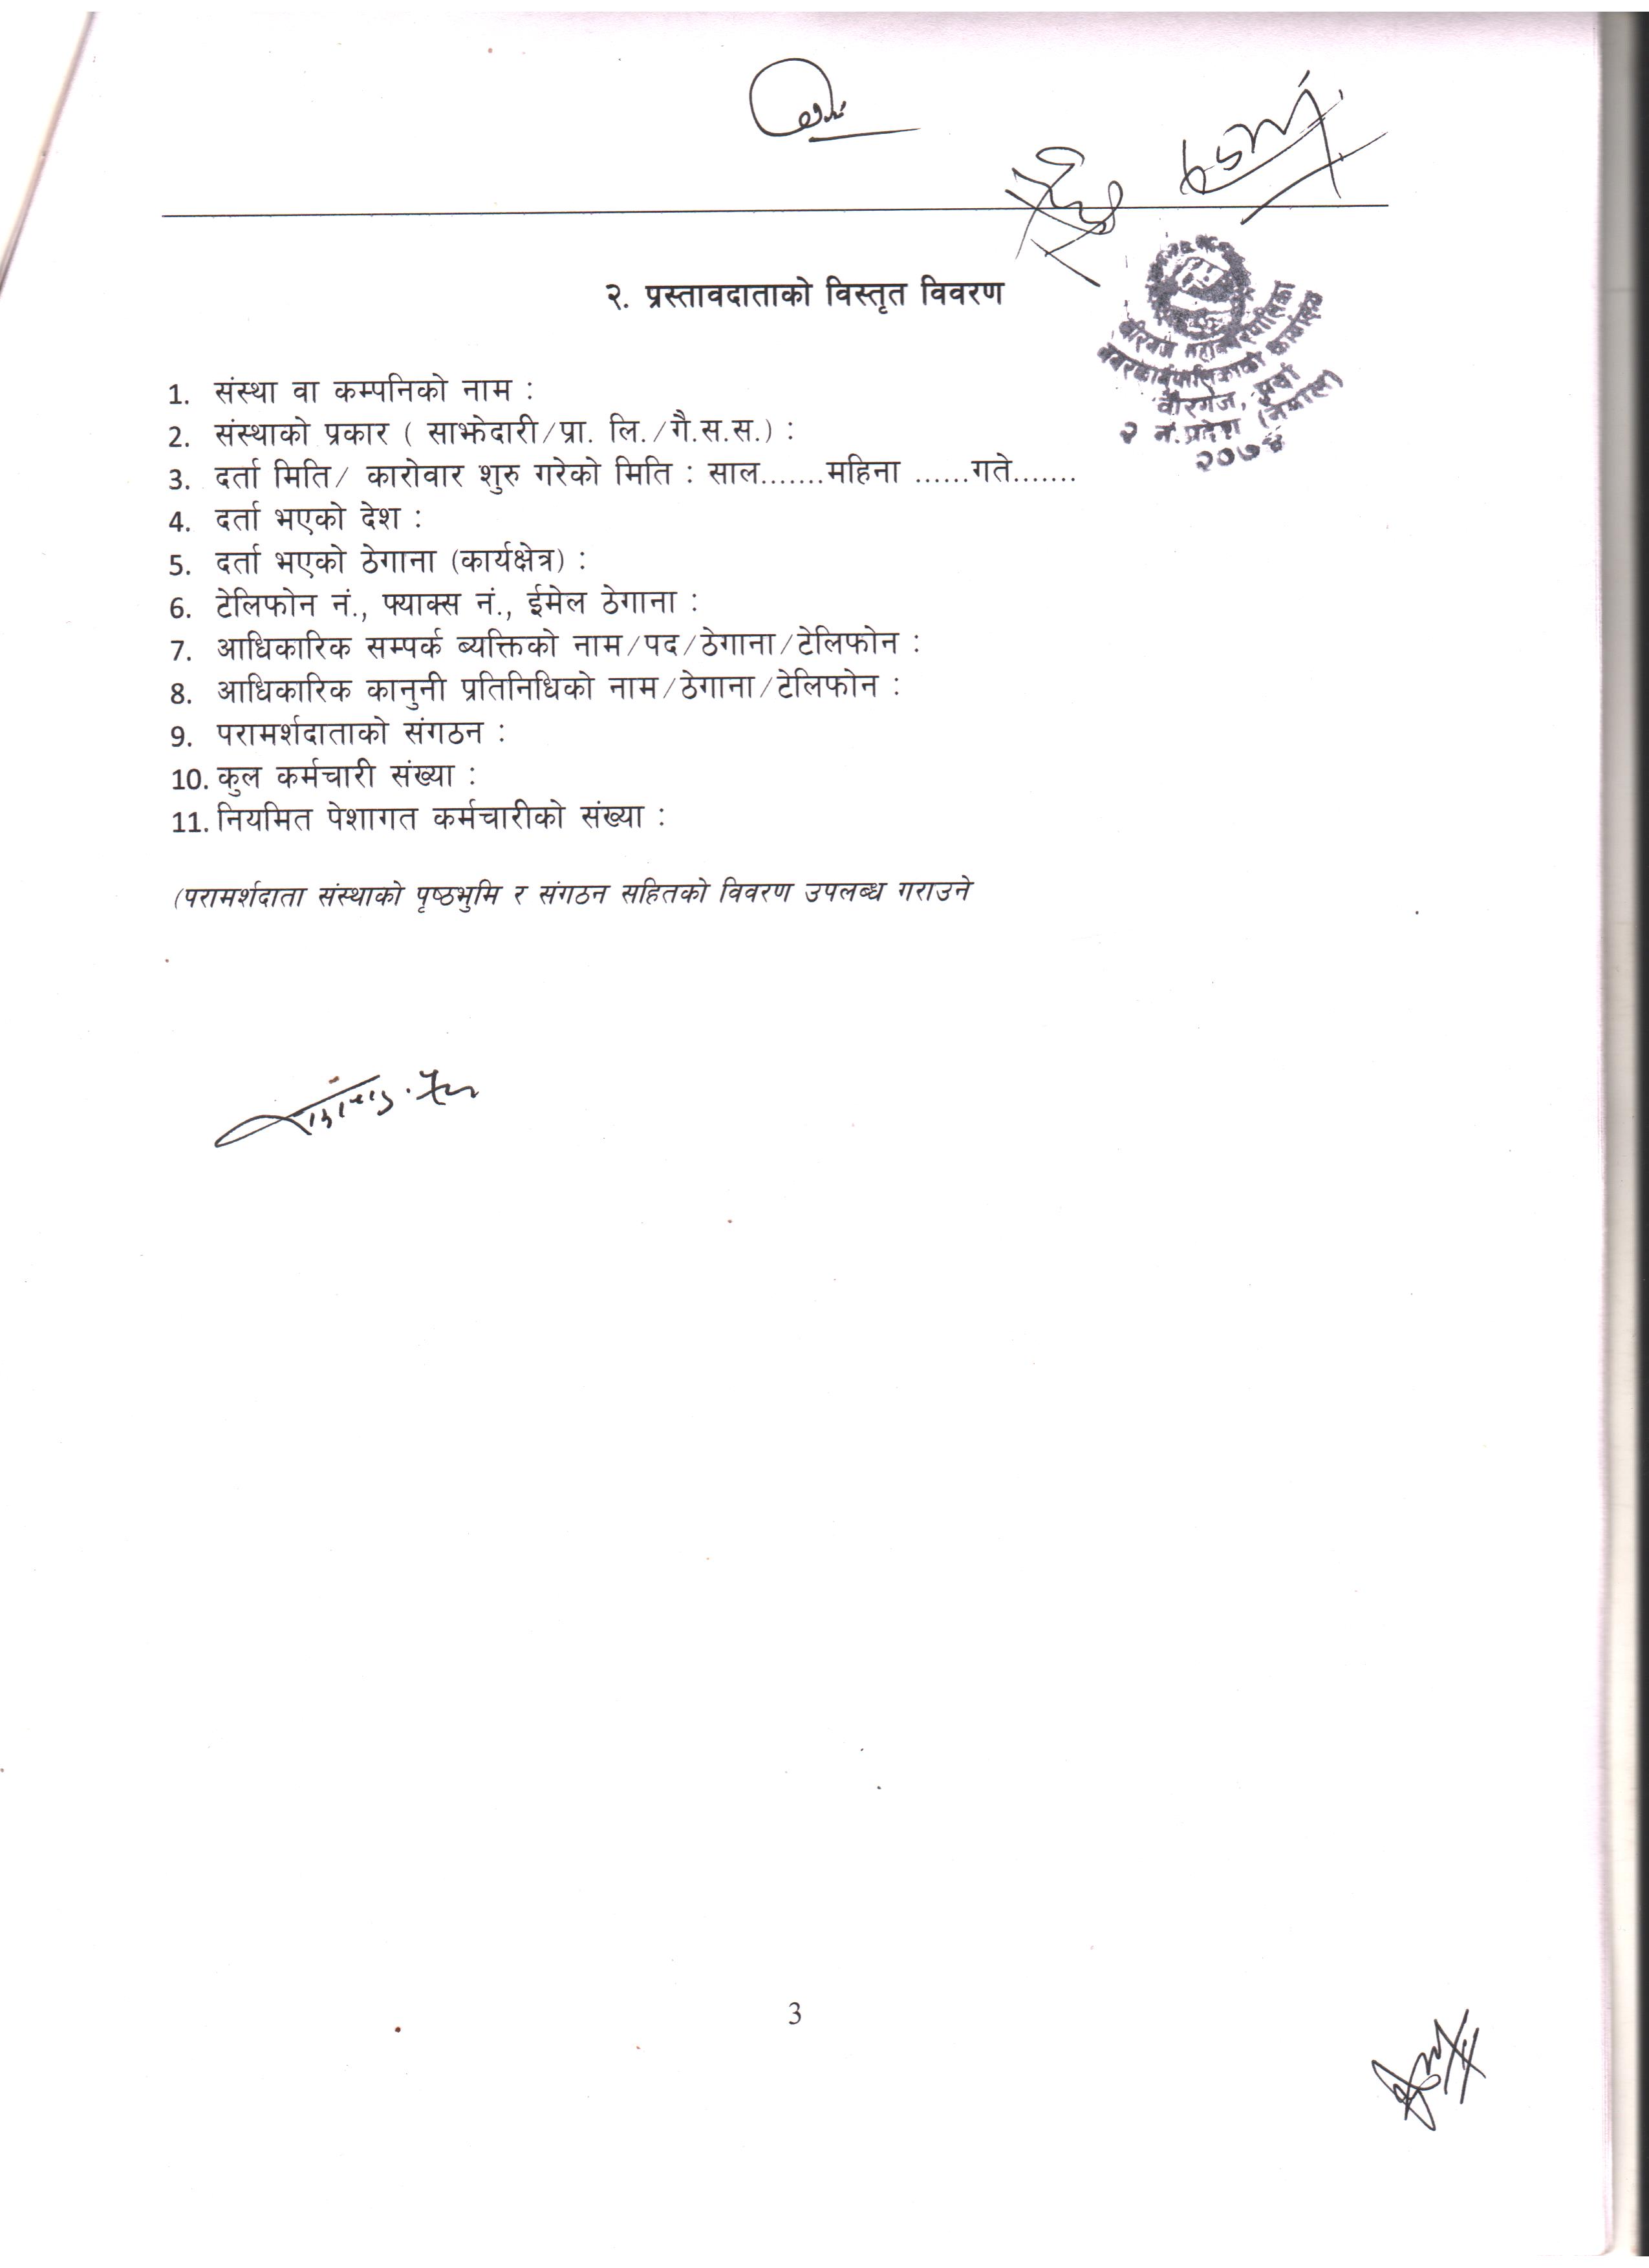 २. प्रस्तावदाताको विस्तृत विवरण
वीरगंज महानगरपालिका
नगरकार्यपालिकाको कार्यालय
वीरगंज, पर्सा
२ नं. प्रदेश (नेपाल)
२०७४
1. संस्था वा कम्पनिको नाम :
2. संस्थाको प्रकार ( साझेदारी/प्रा. लि./गै.स.स.) :
3. दर्ता मिति/ कारोवार शुरु गरेको मिति : साल.......महिना ......गते.......
4. दर्ता भएको देश :
5. दर्ता भएको ठेगाना (कार्यक्षेत्र) :
6. टेलिफोन नं., फ्याक्स नं., ईमेल ठेगाना :
7. आधिकारिक सम्पर्क ब्यक्तिको नाम/पद/ठेगाना/टेलिफोन :
8. आधिकारिक कानुनी प्रतिनिधिको नाम/ठेगाना/टेलिफोन :
9. परामर्शदाताको संगठन :
10. कुल कर्मचारी संख्या :
11. नियमित पेशागत कर्मचारीको संख्या :
(परामर्शदाता संस्थाको पृष्ठभुमि र संगठन सहितको विवरण उपलब्ध गराउने
3